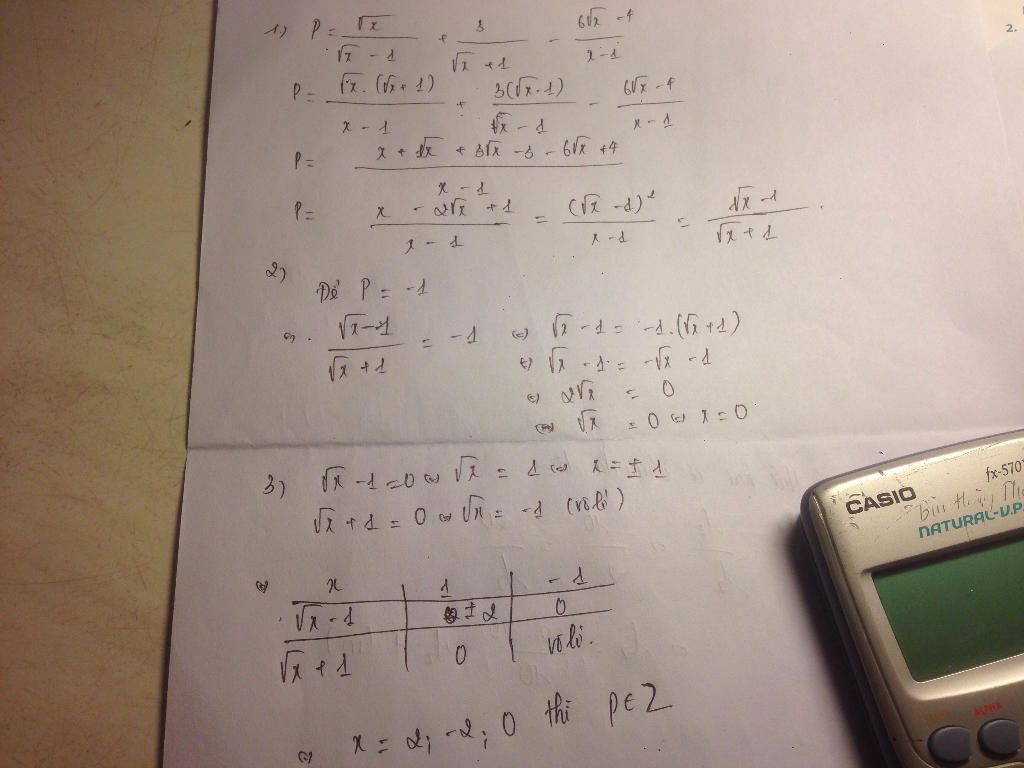 1) P = √x / (√x - 1) + 3 / (√x + 1) - (6√x - 4) / (x - 1)
P = √x . (√x + 1) / (x - 1) + 3(√x - 1) / (x - 1) - (6√x - 4) / (x - 1)
P = (x + √x + 3√x - 3 - 6√x + 4) / (x - 1)
P = (x - 2√x + 1) / (x - 1) = (√x - 1)² / (x - 1) = (√x - 1) / (√x + 1) .
2)
Để P = -1
⇔ (√x - 1) / (√x + 1) = -1 ⇔ √x - 1 = -1.(√x + 1)
⇔ √x - 1 = -√x - 1
⇔ 2√x = 0
⇔ √x = 0 ⇔ x = 0
3) √x - 1 = 0 ⇔ √x = 1 ⇔ x = ± 1
√x + 1 = 0 ⇔ √x = -1 (vô lí)
⇔ x 1 - 1
√x - 1 ± 2 0
√x + 1 0 vô lí.
⇔ x = 2; -2; 0 thì P ∈ Z
2.
CASIO
fx-570
NATURAL-V.P.
ALPHA